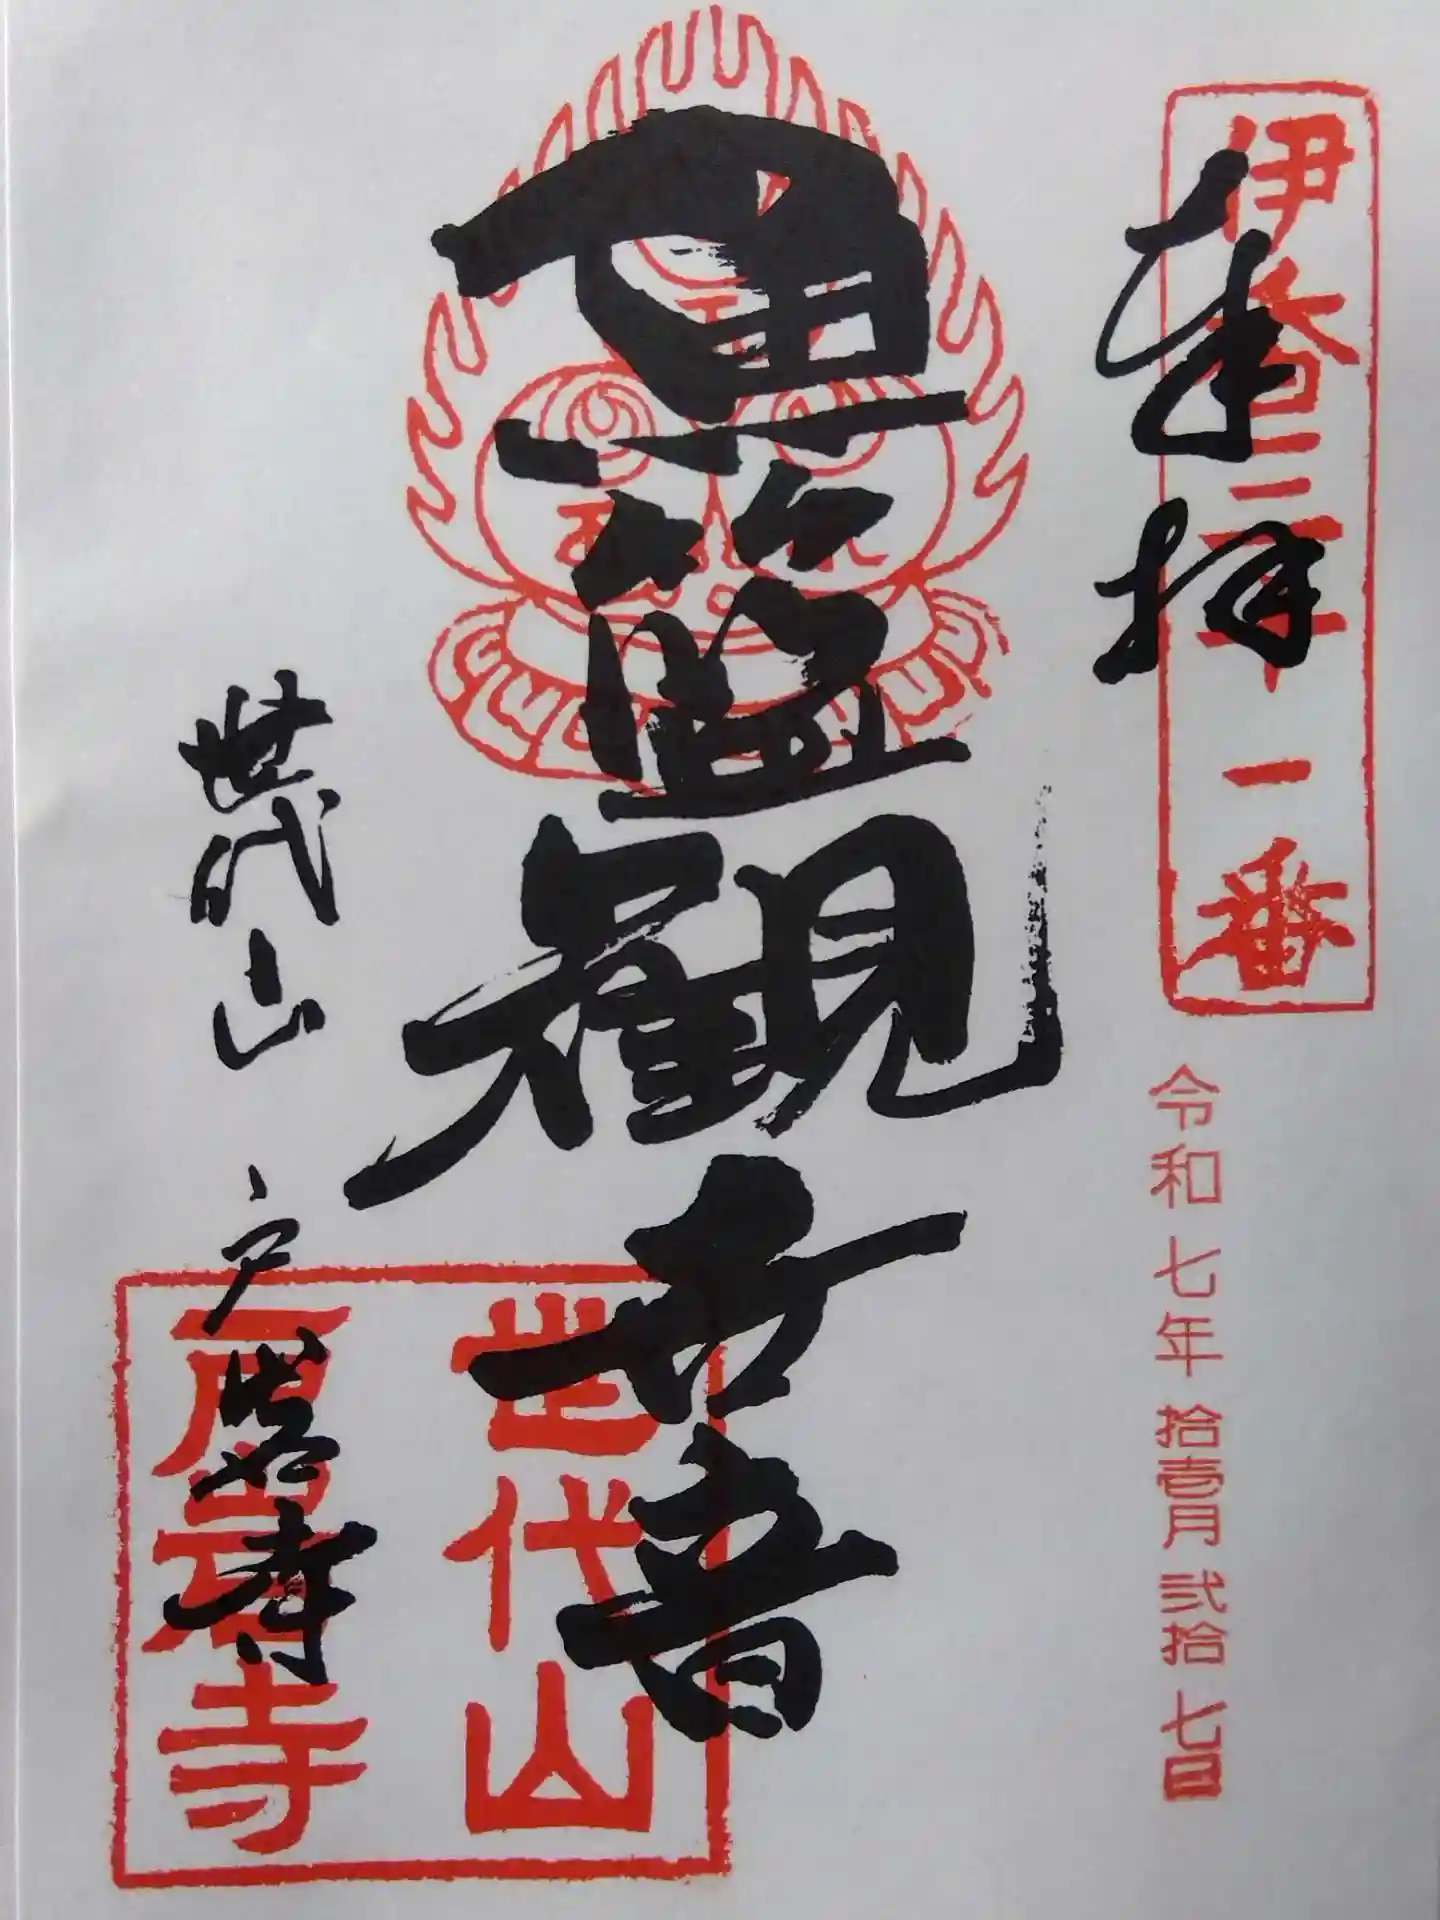 伊香三十一番
奉拝
令和七年拾壹月弐拾七日
魚籃観世音
世代山 戸岩寺
世代山
戸岩寺